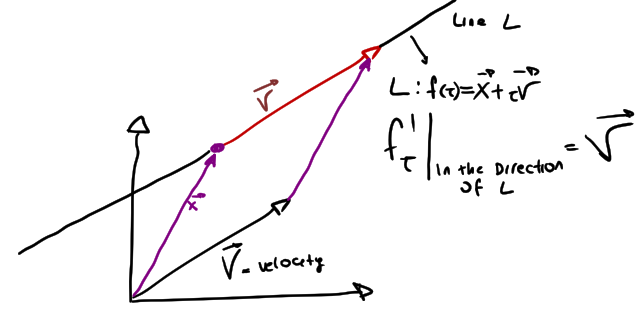 Line L
V⃗
L: f(τ)=X⃗+τV⃗
f'τ | In the Direction of L = V⃗
x⃗
V⃗ - velocity